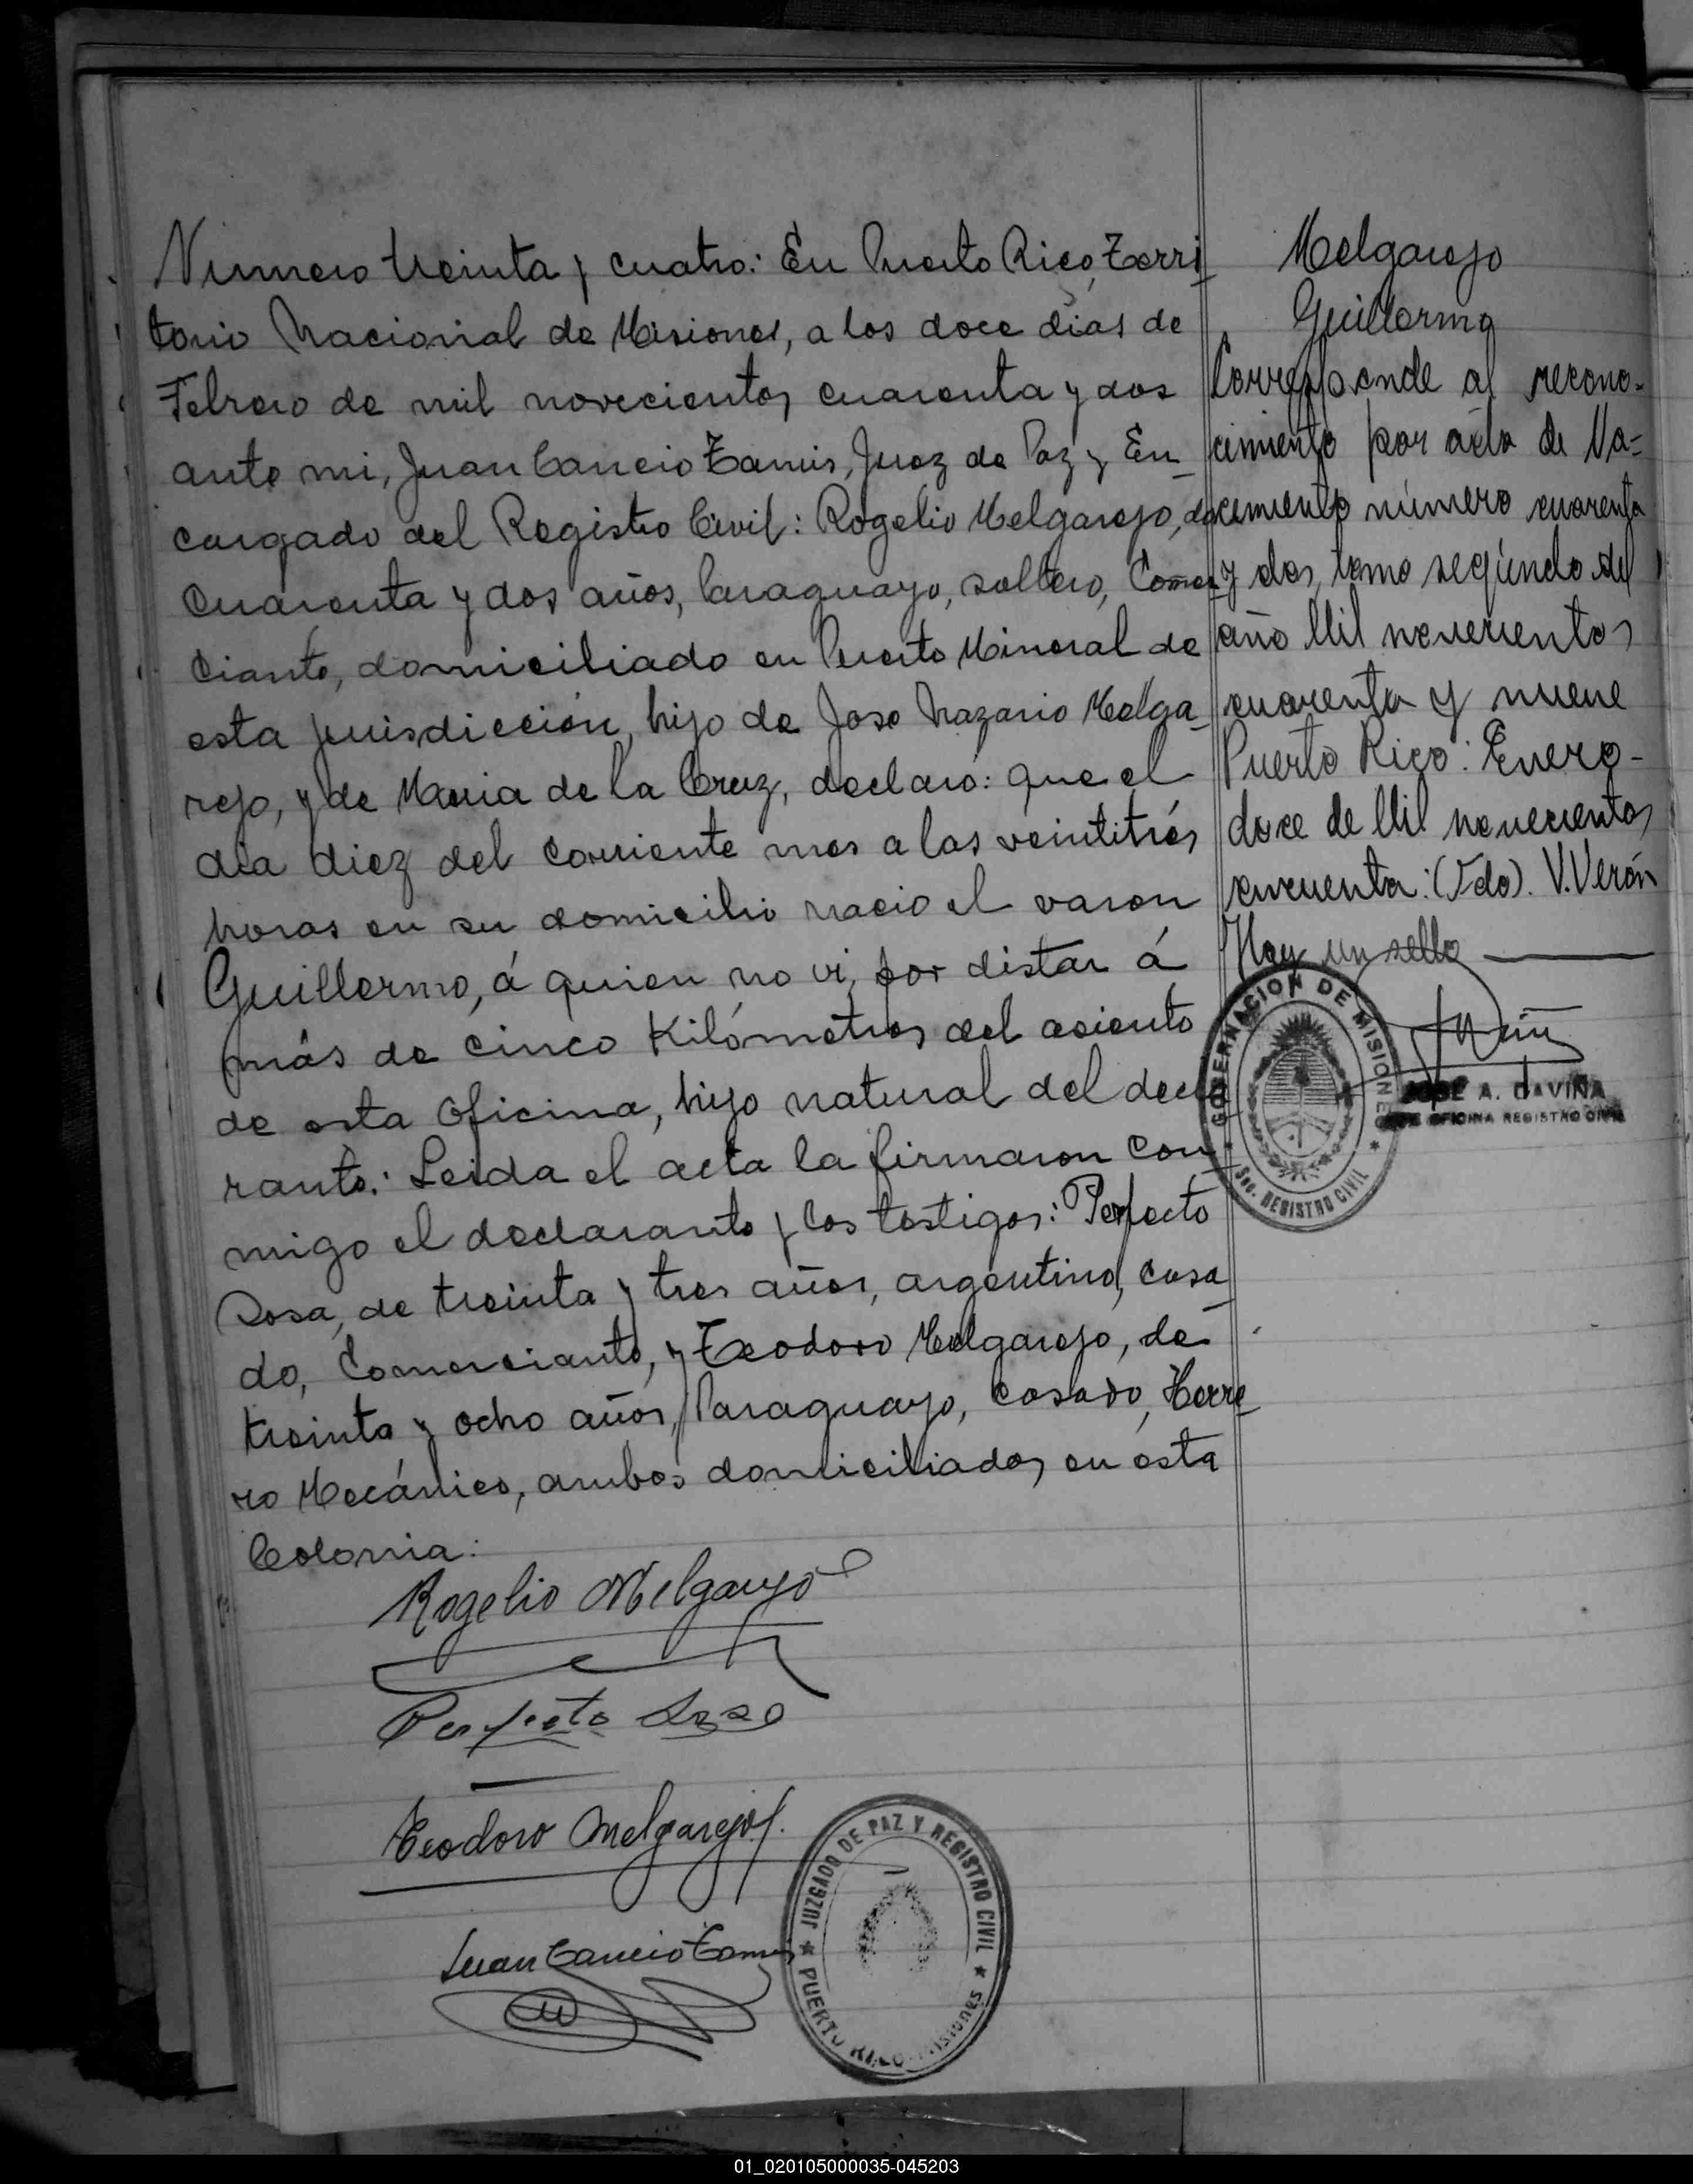 Número treinta y cuatro: En Puerto Rico, Terri
torio Nacional de Misiones, a los doce días de
Febrero de mil novecientos cuarenta y dos
ante mi, Juan Cancio Tamis, Juez de Paz y En
cargado del Registro Civil: Rogelio Melgarejo, de
cuarenta y dos años, Paraguayo, soltero, Comer
ciante, domiciliado en Puerto Mineral de
esta jurisdicción, hijo de Jose Nazario Melga
rejo, y de Maria de la Cruz, declaró: que el
día diez del corriente mes a las veintitrés
horas en su domicilio nacio el varon
Guillermo, á quien no vi, por distar á
más de cinco Kilómetros del asiento
de esta Oficina, hijo natural del decla
rante: Leida el acta la firmaron con
migo el declarante y los testigos: Perfecto
Sosa, de treinta y tres años, argentino, casa
do, Comerciante, y Teodoro Melgarejo, de
treinta y ocho años, Paraguayo, casado, Herre
ro Mecánico, ambos domiciliados en esta
Colonia:
Rogelio Melgarejo
Perfecto Sosa
Teodoro Melgarejo
Juan Cancio Tamis
JUZGADO DE PAZ Y REGISTRO CIVIL
PUERTO RICO Misiones
Melgarejo
Guillermo
Corresponde al recono-
cimiento por acta de Na-
cimiento número cuarenta
y dos, tomo segundo del
año Mil novecientos
cuarenta y nueve
Puerto Rico: Enero-
doce de Mil novecientos
cincuenta: (Fdo). V. Verón
Hay un sello
GOBERNACION DE MISIONES
Sec. REGISTRO CIVIL
JOSE A. DAVIÑA
JEFE OFICINA REGISTRO CIVIL
01_020105000035-045203